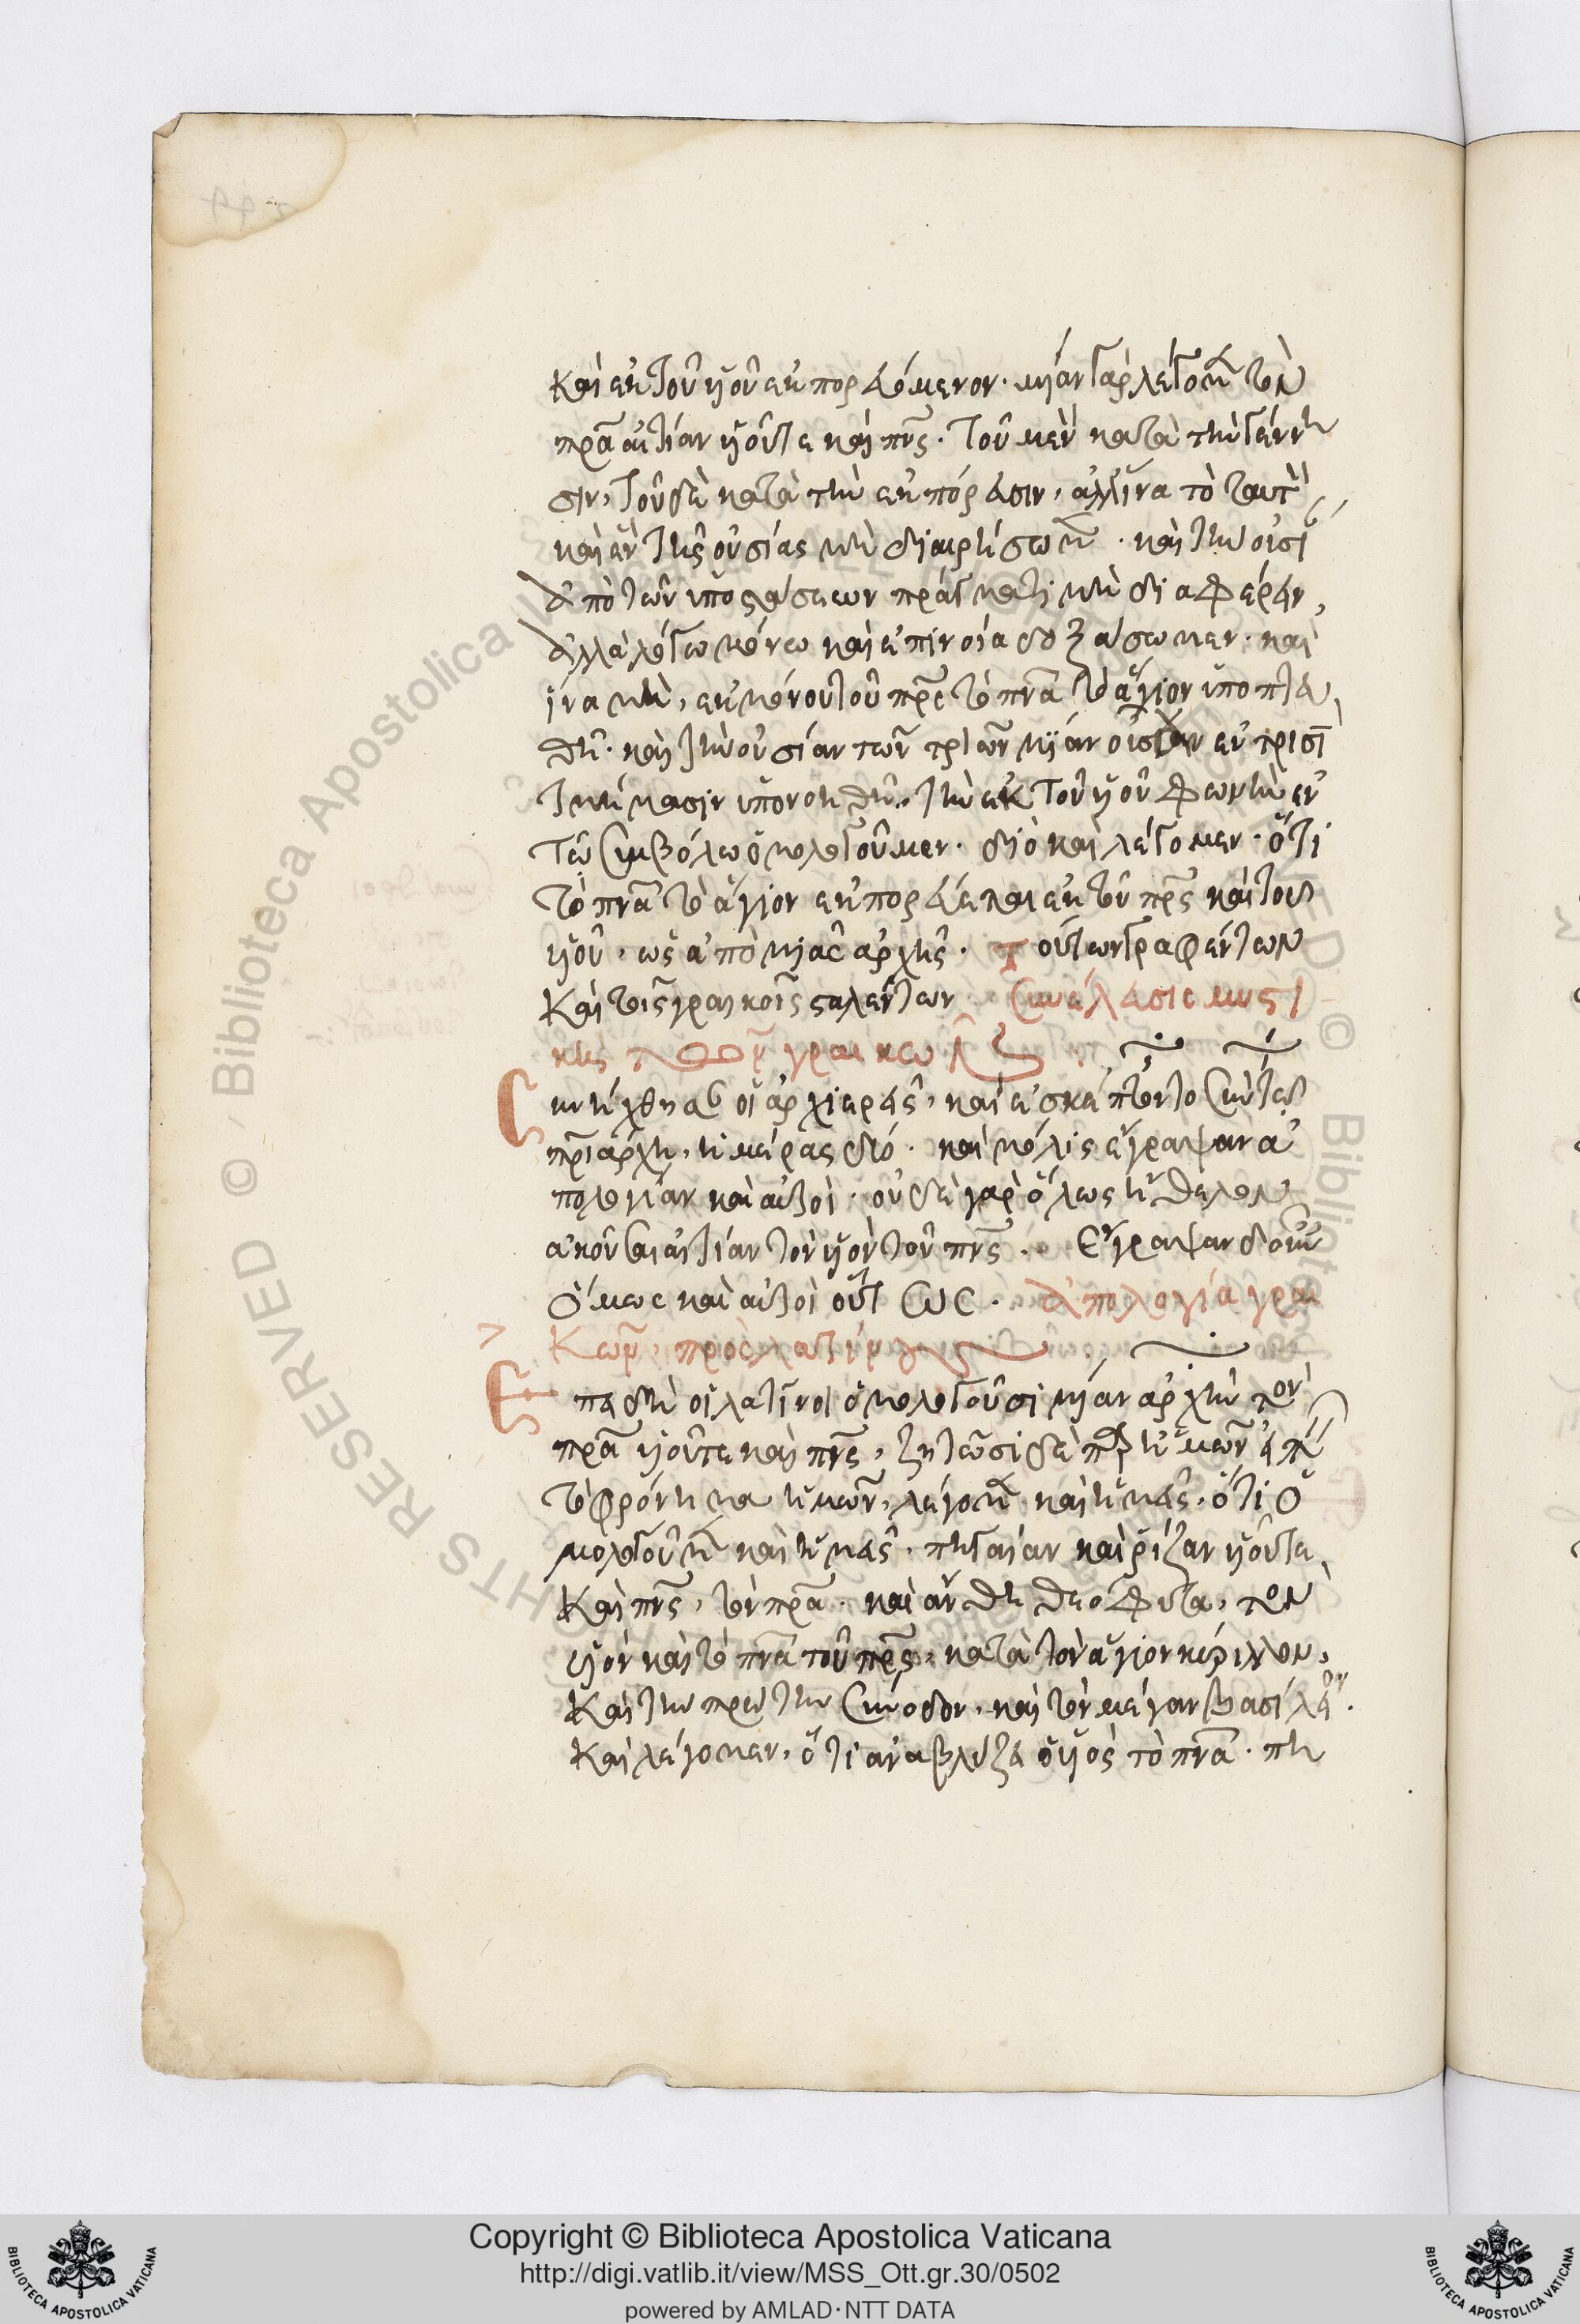 καὶ ἐκ τοῦ υἱοῦ ἐκπορευόμενον· μίαν γὰρ λέγομεν τὸν
πρα αἰτίαν υἱοῦ τε καὶ πνς· τοῦ μὲν κατὰ τὴν γέννη
σιν, τοῦ δὲ κατὰ τὴν ἐκπόρευσιν, ἀλλ' ἵνα τὸ ταυτὸ
καὶ ἓν τῆς οὐσίας μὴ διαιρήσωμεν· καὶ τὴν οὐσί
ἀπὸ τῶν ὑποστάσεων πράγματι μὴ διαφέρειν,
ἀλλὰ λόγω μόνω καὶ ἐπινοία δοξάσωμεν· καὶ
ἵνα μὴ, ἐκ μόνου τοῦ πρς τὸ πνα τὸ ἅγιον ὑποπτευ
θῆ· καὶ τὴν οὐσίαν τῶν τριῶν μίαν οὖσαν ἐν τρισὶ
τμήμασιν ὑπονοηθῆ· τὴν ἐκ τοῦ υἱοῦ φωνὴν ἐν
τῶ συμβόλω ὁμολογοῦμεν· διὸ καὶ λέγομεν· ὅτι
τὸ πνα τὸ ἅγιον ἐκπορεύεται ἐκ τοῦ πρς καὶ τοῦ
υἱοῦ, ὡς ἀπὸ μιᾶς ἀρχῆς· τούτων γραφέντων
καὶ τοῖς γραικοῖς σταλέντων συνέλευσις μυστι
κὴς τῶν γραικῶν
συνήχθησαν οἱ ἀρχιερεῖς, καὶ ἐσκέπτοντο σὺν τῶ
πριάρχη, ἡμέρας δύο· καὶ μόλις ἔγραψαν ἀ
πολογίαν καὶ αὐτοὶ· οὐδὲ γὰρ ὅλως ἤθελον
ἀκοῦσαι αἰτίαν τὸν υἱὸν τοῦ πνς· ἔγραψαν δ' οὖν
ὅμως καὶ αὐτοὶ οὕτως· ἀπολογία γραι
κῶν, πρὸς λατίνους
ἐπειδὴ οἱ λατῖνοι ὁμολογοῦσι μίαν ἀρχὴν τὸν
πρα υἱοῦ τε καὶ πνς, ζητῶσι δὲ παρ' ἡμῶν εἰπεῖ
τὸ φρόνημα ἡμῶν, λέγομεν καὶ ἡμεῖς, ὅτι ὁ
μολογοῦμεν καὶ ἡμεῖς, πηγαίαν καὶ ῥίζαν υἱοῦ τε
καὶ πνς, τὸν πρα· καὶ ἄνθη θεόφυτα, τὸν
υἱὸν καὶ τὸ πνα τοῦ πρς, κατὰ τὸν ἅγιον κύριλλον,
καὶ τὴν πρώτην σύνοδον, καὶ τὸν μέγαν βασίλειον·
καὶ λέγομεν, ὅτι ἀναβλύζει ὁ υἱὸς τὸ πνα· πη